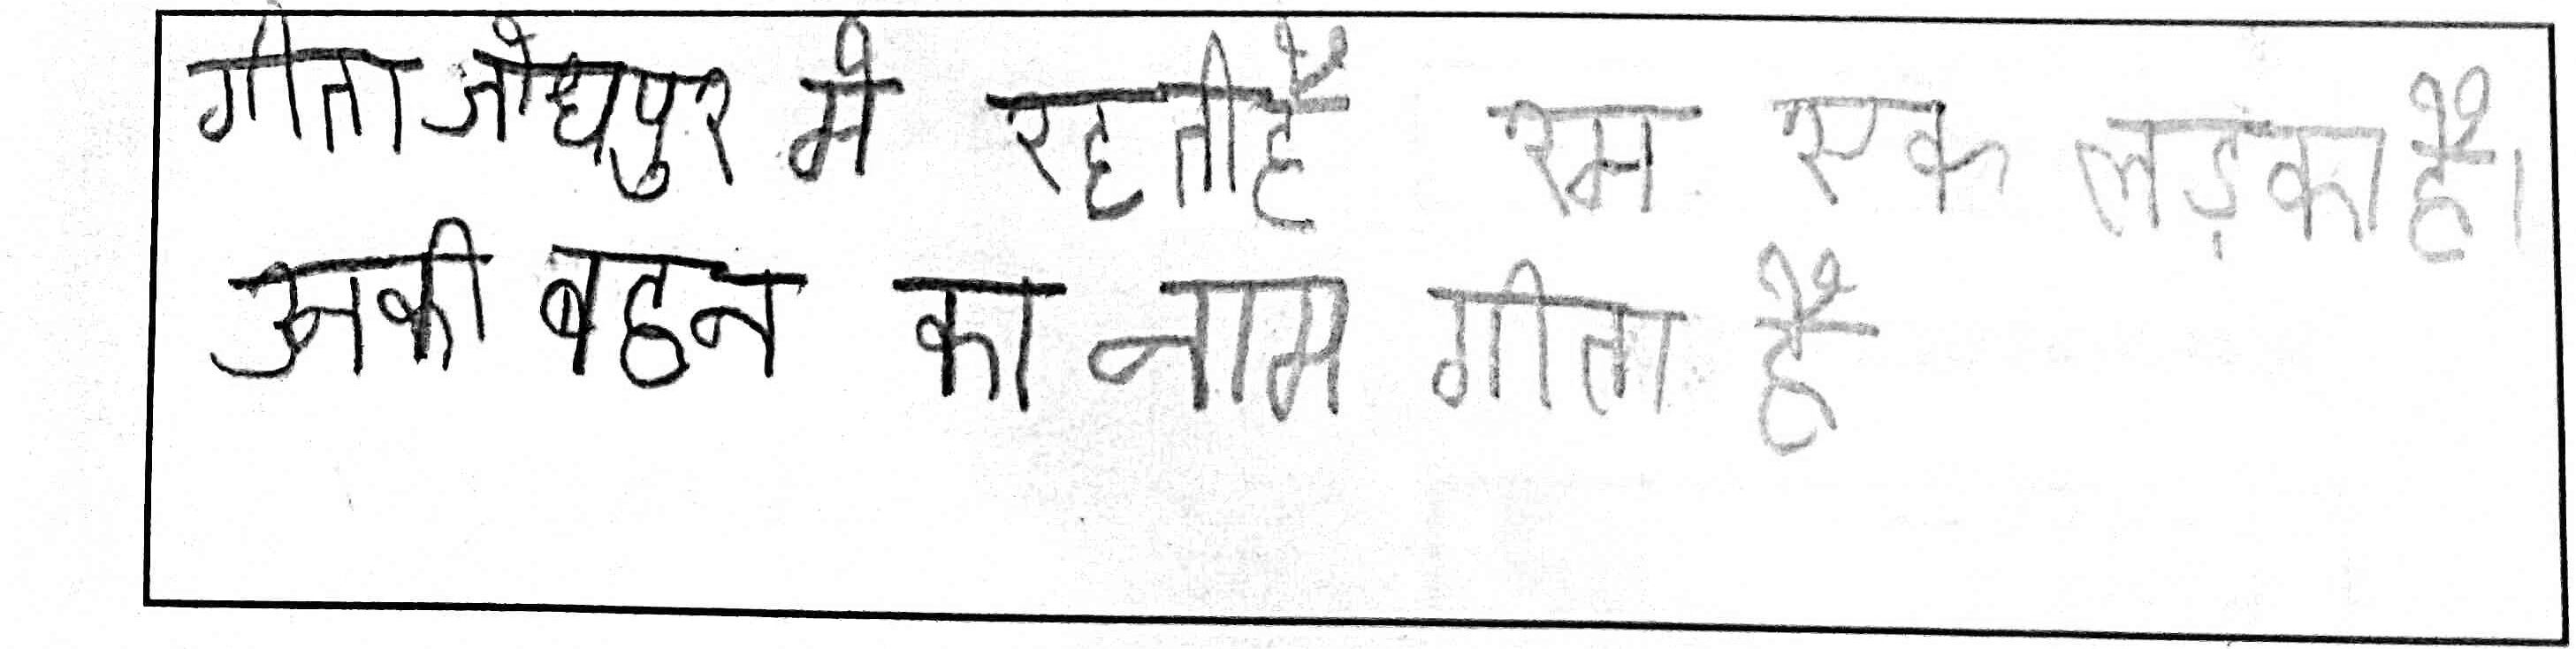 गीता जोधपुर मे रहतीहै रम एक लड़का है।
उनकी बहन का नाम गीता है